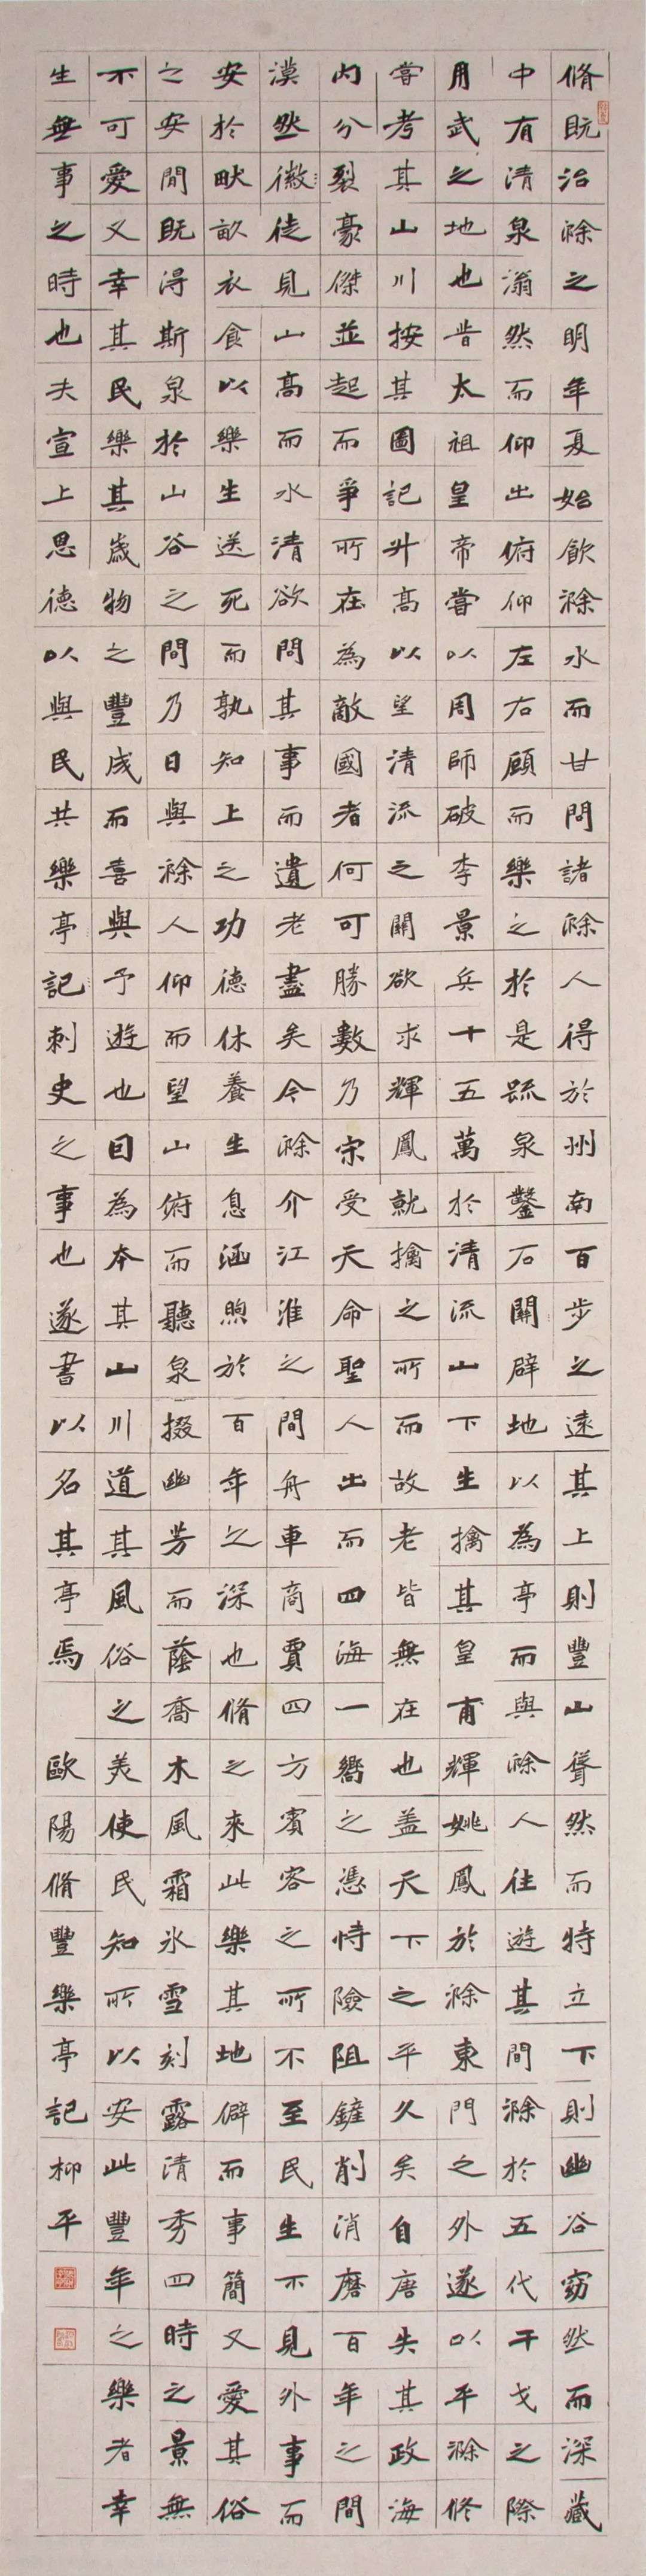 脩既治滁之明年夏始飲滁水而甘問諸滁人得於州南百步之遠其上則豐山聳然而特立下則幽谷窈然而深藏
中有清泉滃然而仰出俯仰左右顧而樂之於是疏泉鑿石關辟地以為亭而與滁人往遊其間滁於五代干戈之際
用武之地也昔太祖皇帝嘗以周師破李景兵十五萬於清流山下生擒其皇甫輝姚鳳於滁東門之外遂以平滁修
嘗考其山川按其圖記升高以望清流之關欲求輝鳳就擒之所而故老皆無在也蓋天下之平久矣自唐失其政海
内分裂豪傑並起而爭所在為敵國者何可勝數乃宗受天命聖人出而四海一嚮之憑恃險阻鏟削消磨百年之間
漠然徽徒見山高而水清欲問其事而遺老盡矣今滁介江淮之間舟車商賈四方賓客之所不至民生不見外事而
安於畎畝衣食以樂生送死而孰知上之功德休養生息涵煦於百年之深也脩之來此樂其地僻而事簡又愛其俗
之安閒既得斯泉於山谷之間乃日與滁人仰而望山俯而聽泉掇幽芳而蔭喬木風霜冰雪刻露清秀四時之景無
不可愛又幸其民樂其歲物之豐成而喜與予遊也因為本其山川道其風俗之美使民知所以安此豐年之樂者幸
生無事之時也夫宣上恩德以與民共樂亭記刺史之事也遂書以名其亭焉 歐陽脩豐樂亭記柳平